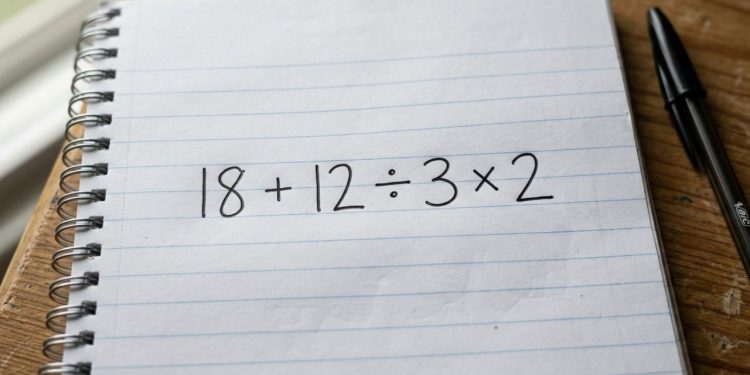 18 + 12 ÷ 3 × 2
BIC